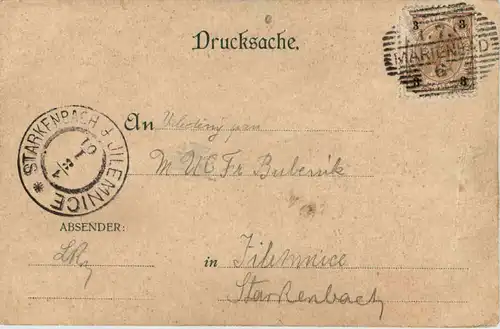 Drucksache.
3 3
MARIENBAD
3 3
STARKENBACH JILEMNICE *
An
M U C Fr Bubenik
ABSENDER:
in Jilemnice
Starkenbach